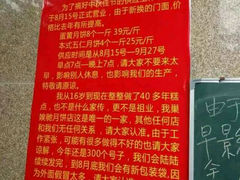 为了搞好中秋佳节的供应
于8月15号正式营业，由于新换的门面，价
格比去年有所提高。
蛋黄月饼8个一斤 39元/斤
本式五仁月饼4个一斤25元/斤
供应时间是从8月15号—9月27号
早点7点—晚上7点，请大家不要来太
早，影响别人休息，也影响我们的生产，
特敬请原谅。
我从16岁到现在整整做了40多年糕
点，也不是什么家传，更不是祖业，我巢
娘糍月饼店这是唯一的一家，其他任何店
和我们无任何关系，请大家认准。由于工
作紧张，可能有很多做得不好的也请大家
谅解，今年还是300个号子，我们会陆陆
续续发完，到8月底我们会有新包装袋，因
为外面假冒太多，请大家
由于
早
全